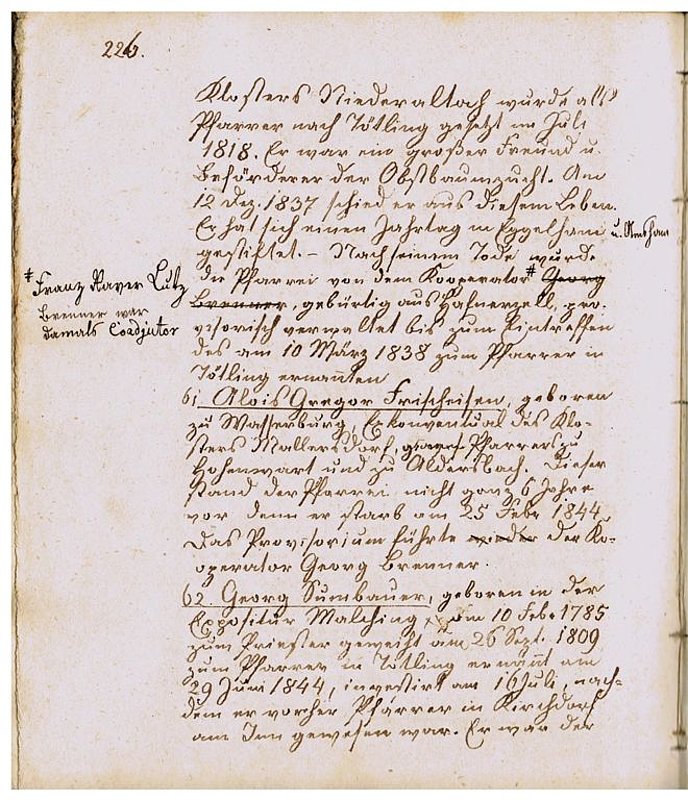 226.
Klosters Niederaltach wurde als
Pfarrer nach Tötling gesetzt im Juli
1818. Er war ein großer Freund u.
Beförderer der Obstbaumzucht. Am
12 Dez. 1837 schied er aus diesem Leben.
Er hat sich einen Jahrtag in Eggelham u. Amsham
gestiftet. – Nach seinem Tode wurde
die Pfarrei von dem Kooperator # Georg
Brenner, gebürtig aus Hafnerzell, pro-
visorisch verwaltet bis zum Eintreffen
des am 10 März 1838 zum Pfarrer in
Tötling ernannten
# Franz Xaver Lutz
Brenner war
damals Coadjutor
61. Alois Gregor Frischeisen, geboren
zu Wasserburg, Exkonventual des Klo-
sters Mallersdorf, Pfarrer zu
Hohenwart und zu Aldersbach. Dieser
stand der Pfarrei nicht ganz 6 Jahre
vor denn er starb am 25 Febr 1844.
Das Provisorium führte wieder der Ko-
operator Georg Brenner.
62. Georg Sumbauer, geboren in der
Expositur Malching am 10 Feb. 1785
zum Priester geweiht am 26 Sept. 1809
zum Pfarrer in Tötling ernannt am
29 Juni 1844, investirt am 16 Juli, nach-
dem er vorher Pfarrer in Kirchdorf
am Inn gewesen war. Er war der